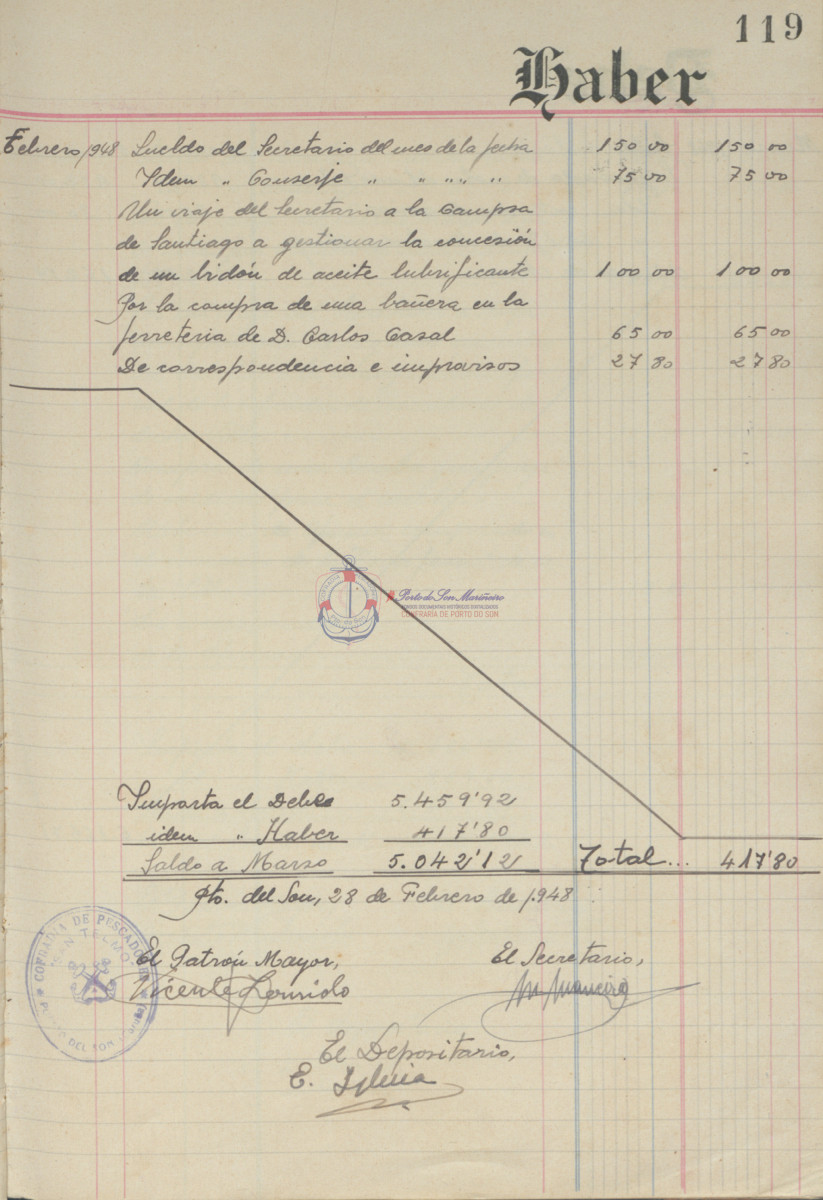 119
Haber
Febrero 1948 Sueldo del Secretario del mes de la fecha 150 00 150 00
Idem " Conserje " " " " " 75 00 75 00
Un viaje del Secretario a la Campsa
de Santiago a gestionar la concesión
de un bidón de aceite lubrificante 100 00 100 00
Por la compra de una bañera en la
ferreteria de D. Carlos Casal 65 00 65 00
De correspondencia e improvisos 27 80 27 80
Porto do Son Mariñeiro
FONDOS DOCUMENTAIS HISTÓRICOS DIXITALIZADOS
CONFRARÍA DE PORTO DO SON
Importa el Debe 5.459'92
idem " Haber 417'80
Saldo a Marzo 5.042'12 Total... 417'80
Pto. del Son, 28 de Febrero de 1948
COFRADIA DE PESCADORES
SAN TELMO
DEL SON
El Patrón Mayor, El Secretario,
Vicente
El Depositario,
E.